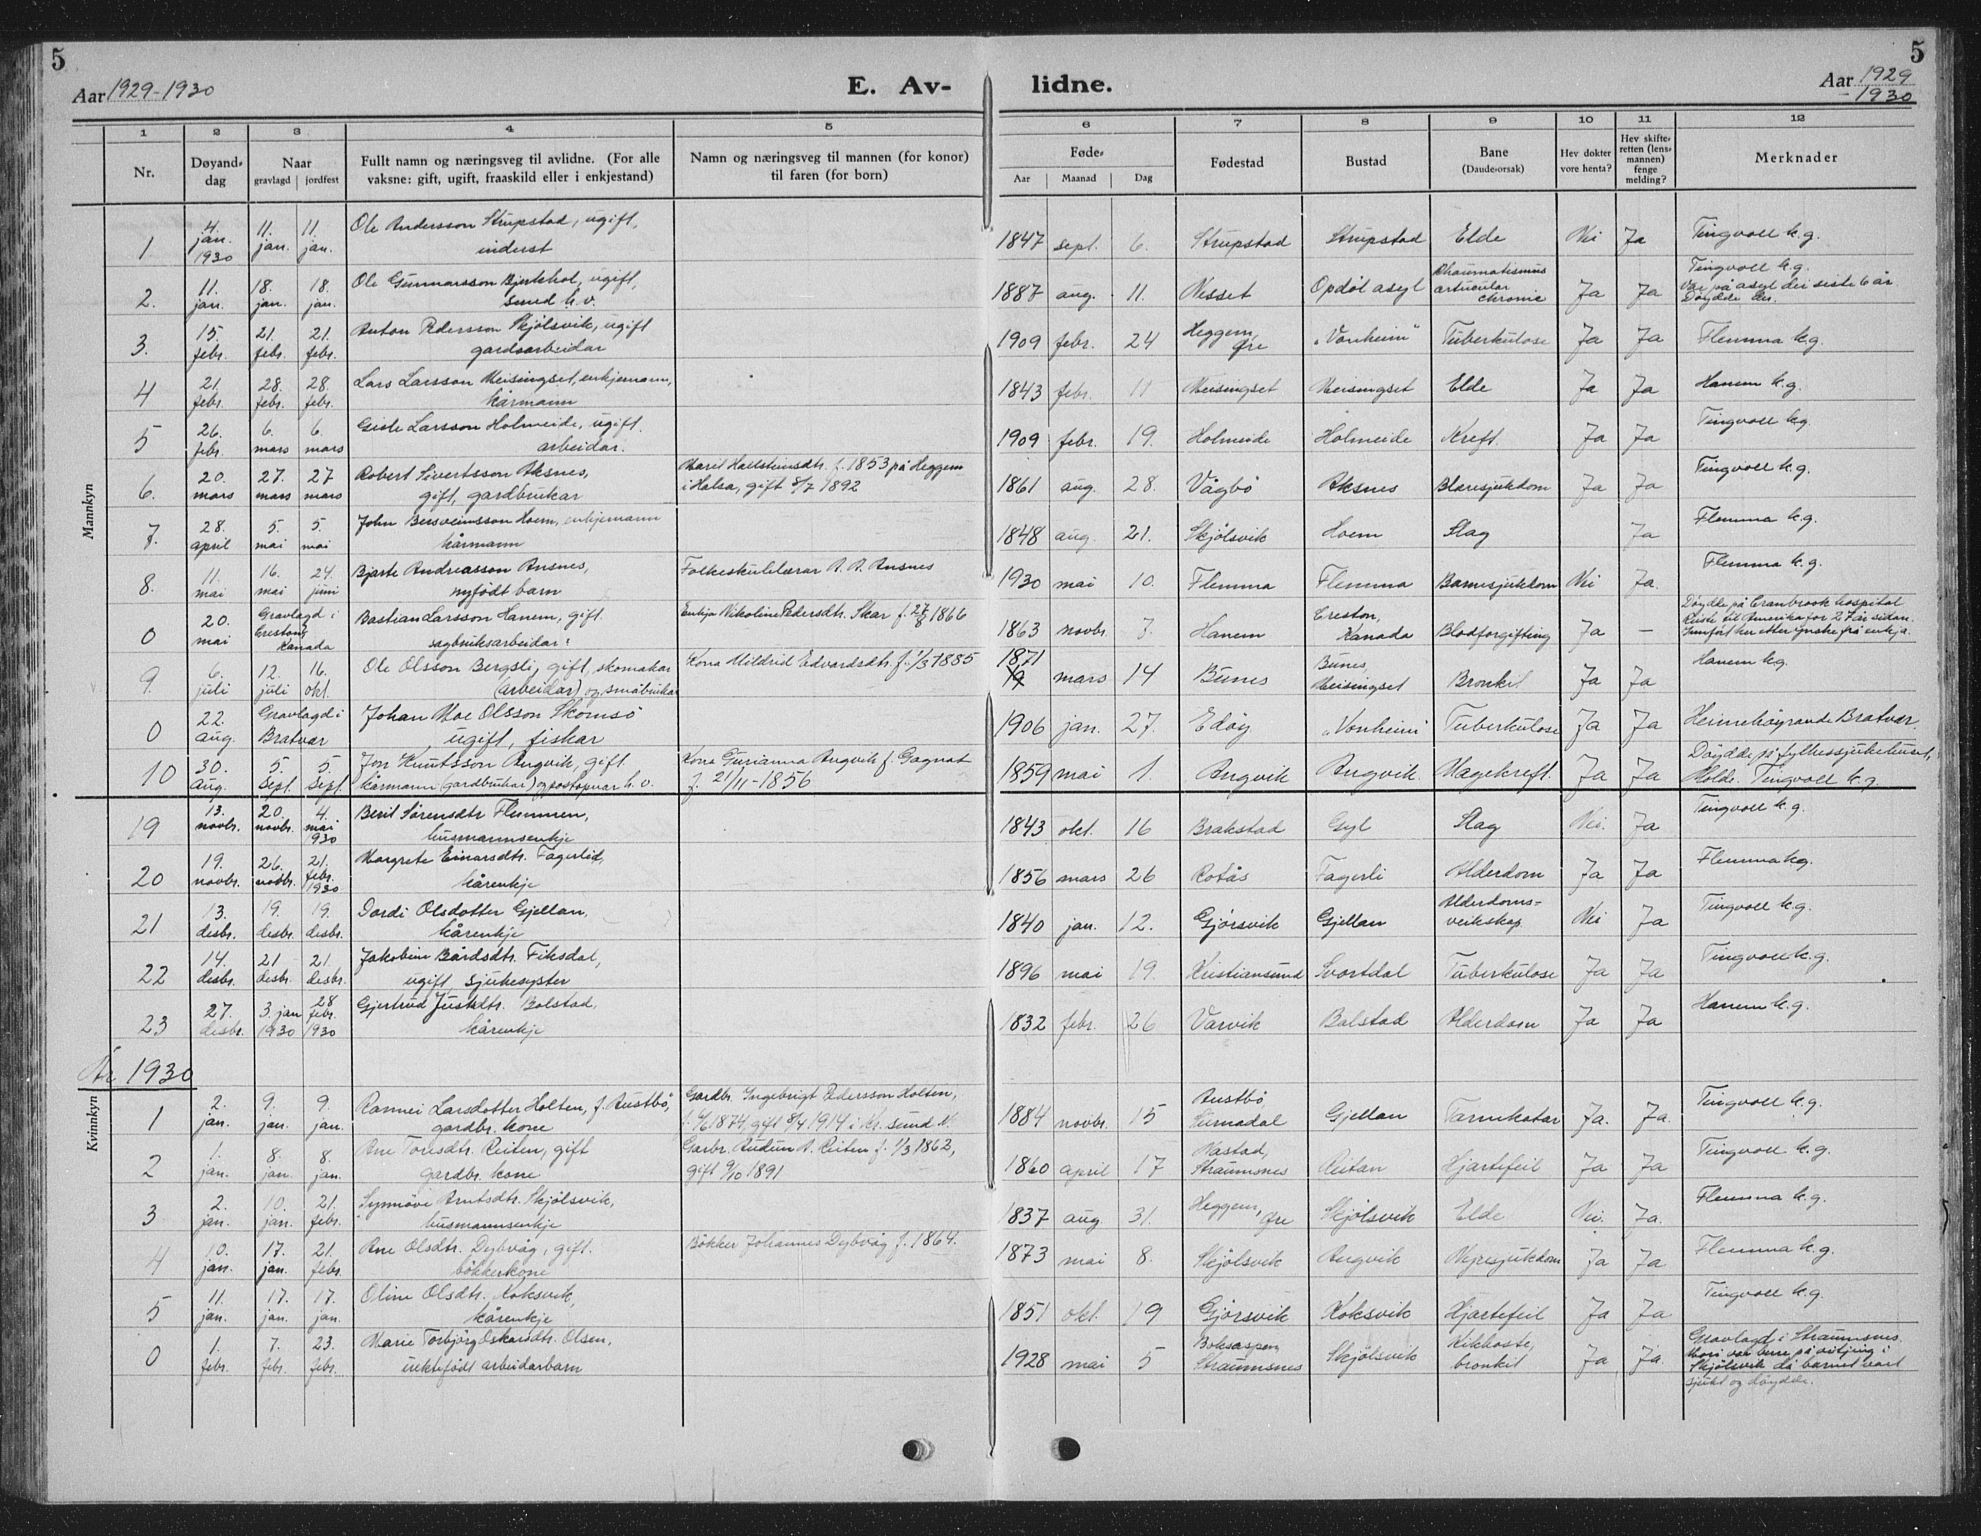 5
5
Aar 1929-1930
E. Av-
lidne.
Aar 1929
-1930
1 2 3 4 5 6 7 8 9 10 11 12
Nr.
Døyand-
dag
Naar
gravlagd | jordfest
Fullt namn og næringsveg til avlidne. (For alle
vaksne: gift, ugift, fraaskild eller i enkjestand)
Namn og næringsveg til mannen (for konor)
til faren (for born)
Føde-
Aar Maanad Dag
Fødestad
Bustad
Bane
(Daude-orsak)
Hev dokter
vore henta?
Hev skifte-
retten (lens-
mannen)
fenge
melding?
Merknader
Mannkyn
1 4. jan. 1930 11. jan. 11. jan. Ole Andersson Strupstad, ugift, 1847 sept. 6. Strupstad Strupstad Elde Nei Ja Tingvoll k.g.
inderst
2. 11. jan. 18. jan. 18. jan. Ole Gunnarsson ugift, 1887 aug. 11. Nesset Opdøl asyl Rhaumatismus articular chronic Ja Ja Tingvoll k.g.
smed h.v. Var på asyl dei siste 6 år
Døydde der.
3. 15. febr. 21. febr. 21. febr. Anton Pedersson Skjølsvik, ugift 1909 febr. 24 Heggem, Øre "Vonheim" Tuberkulose Ja Ja Flemma k.g.
gardsarbeidar
4 21. febr. 28. febr. 28. febr. Lars Larsson Meisingset, enkjemann, 1843 febr. 11 Meisingset Meisingset Elde Ja Ja Hanem k.g.
kårmann
5 26. febr. 6. mars 6. mars Larsson Holmeide, ugift. 1909 febr. 19. Holmeide Holmeide Kreft. Ja Ja Tingvoll k.g.
arbeidar.
6. 20. mars 27. mars 27 mars Robert Sivertsson Aksnes, Marit Hallsteinsdtr. f. 1853 på Heggem 1861 aug. 28. Vågbø Aksnes Blæresjukdom Ja Ja Tingvoll k.g.
gift, gardbrukar i Halsa, gift 8/7 1892
7. 28. april 5. mai 5. mai John Bersveinsson Hoem, enkjemann 1848 aug. 21. Skjølsvik Hoem Slag Ja Flemma k.g.
kårmann
8. 11. mai 16. mai 24. juni Bjarte Andreasson Ansnes, Folkeskulelærar A. A. Ansnes 1930 mai 10. Flemma Flemma Barnesjukdom Nei Ja. Flemma k.g.
nyfødt barn
0 20. mai Gravlagd i Creston, Kanada Bastian Larsson Hanem, gift. Enkja Nikoline Pedersdtr. Skar f. 27/8 1866 1863 novbr. 7. Hanem Creston, Kanada Blodforgifting Ja - Døydde på Cranbrook hospital
sagbruksarbeidar. Reiste til Amerika for 27 år sidan.
Innført her etter ynskje frå enkja.
9. 6. juli 12. juli 16. okt. Ole Olsson Bergsli, gift, skomakar Kona Mildrid Edvardsdtr. f. 1/3 1885 1871 mars 14 Bunes Bunes, Meisingset Bronkit Ja Ja Hanem k.g.
(arbeidar) og småbrukar
0 22. aug. Gravlagd i Bratvær Johan Moe Olsson Skomsø 1906 jan. 27. Edøy "Vonheim" Tuberkulose Ja Ja Heimehøyrande Bratvær.
ugift, fiskar
10 30. aug. 5. sept. 5. sept. Jon Knutsson Angvik, gift. Kona Gurianna Angvik f. Gagnat 1859 mai 1. Angvik Angvik. Magekreft. Ja Ja Døydde på fylkessjukehuset,
kårmann (gardbrukar) og postopnar h.v. f. 21/11-1856 Molde. Tingvoll k.g.
19 13. novbr. 20. novbr. 4. mai 1930 Berit Sørensdtr. Flemmen, 1843 okt. 16 Brakstad Gyl Slag Nei. Ja Tingvoll k.g.
husmannsenkje
20 19. novbr. 26. novbr. 21. febr. 1930 Margrete Einarsdtr. Fagerlid, 1856 mars 26 Rotås Fagerli Alderdom Ja Ja Flemma k.g.
kårenkje
21 13. desbr. 19. desbr. 19. desbr. Dordi Olsdotter Gjellan, 1840 jan. 12. Gjørsvik Gjellan Alderdoms-veikskap Nei Ja Tingvoll k.g.
kårenkje
22 14. desbr. 21 desbr. 21. desbr. Jakobine Bårdsdtr. Fiksdal, 1896 mai 19. Kristiansund Svortdal Tuberkulose Ja Ja Tingvoll k.g.
ugift, sjukesyster
23 27. desbr. 3. jan 1930 28 febr. 1930 Gjertrud Justsdtr. Bolstad, 1832 febr. 26 Varvik Bolstad Alderdom Ja Ja Hanem k.g.
kårenkje
År 1930
Kvinnkyn
1 2. jan. 9. jan. 9. jan. Rannei Larsdotter Holten, f. Austbø, Gardbr. Ingebrigt Pedersson Holten, 1884 novbr. 15 Austbø Surnadal Gjellan Tarmkatar Ja. Ja. Tingvoll k.g.
gardbr. kone 1874, gift 8/4 1914 i Kr.sund N.
2 1. jan. 8. jan. 8. jan. Ane Toresdtr. Reiten, gift Garbr. Audun A. Reiten f. 1/3 1862, 1860 april 17 Hastad, Straumsnes Reitan Hjartefeil Ja Ja Tingvoll k.g.
gardbr. kone gift 9/10 1891
3 2. jan. 10. jan. 21. febr. Synnøve Arntsdtr. Skjølsvik, 1837 aug. 31. Heggem, Øre Skjølsvik Elde Nei. Ja. Flemma k.g.
husmannsenkje
4 10. jan. 17. jan. 21. febr. Ane Olsdtr. Dybvåg, gift. Bøkker Johannes Dybvåg f. 1864. 1873 mai 8. Skjølsvik Angvik Nyresjukdom Ja Ja Flemma k.g.
bøkkerkone
5 11. jan. 17. jan. 17. jan. Oline Olsdtr. Koksvik, 1851 okt. 19 Gjørsvik Koksvik Hjartefeil Ja Ja Tingvoll k.g.
kårenkje
0 1. febr. 7. febr. 23. febr. Marie Torbjørg Oskarsdtr. Olsen, 1928 mai 5 Straumsnes Skjølsvik Kikhoste, bronkit Ja Ja. Gravlagd i Straumsnes.
uektefødt arbeidarbarn Mori var berre på vitjing i
Skjølsvik då barnet vart
sjukt og døydde.